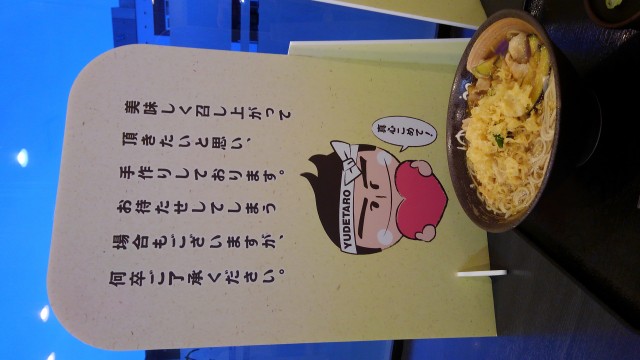 美味しく召し上がって
頂きたいと思い、
手作りしております。
お待たせしてしまう
場合もございますが、
何卒ご了承ください。
真心こめて!
YUDETARO